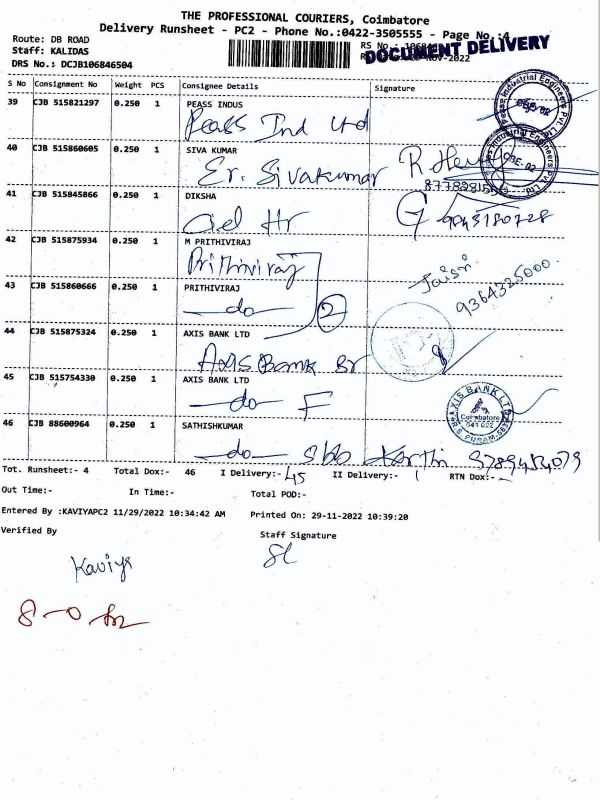 THE PROFESSIONAL COURIERS, Coimbatore
Delivery Runsheet - PC2 - Phone No.:0422-3505555 - Page No.:4
Route: DB ROAD
Staff: KALIDAS
DRS No.: DCJB106846504
DOCUMENT DELIVERY
S No Consignment No Weight PCS Consignee Details Signature
39 CJB 515821297 0.250 1 PEASS INDUS
Peass Ind Ltd
40 CJB 515860605 0.250 1 SIVA KUMAR
Er. Sivakumar
41 CJB 515845866 0.250 1 DIKSHA
9843180728
42 CJB 515875934 0.250 1 M PRITHIVIRAJ
Prithiviraj
43 CJB 515860666 0.250 1 PRITHIVIRAJ
-do- 2
9364325000
44 CJB 515875324 0.250 1 AXIS BANK LTD
Axis Bank Br
45 CJB 515754330 0.250 1 AXIS BANK LTD
-do- F
AXIS BANK LTD
Coimbatore
641 002
46 CJB 88600964 0.250 1 SATHISHKUMAR
-do- Sbb Karthi
Tot. Runsheet:- 4 Total Dox:- 46 I Delivery:- 45 II Delivery:- RTN Dox:-
Out Time:- In Time:- Total POD:-
Entered By :KAVIYAPC2 11/29/2022 10:34:42 AM Printed On: 29-11-2022 10:39:20
Verified By Staff Signature
Kaviya